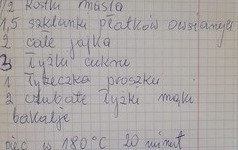 1/2 kostki masła
1,5 szklanki płatków owsianych
2 całe jajka
3 łyżki cukru
1 łyżeczka proszku
2 czubate łyżki mąki
bakalje
piec w 180°C 20 minut